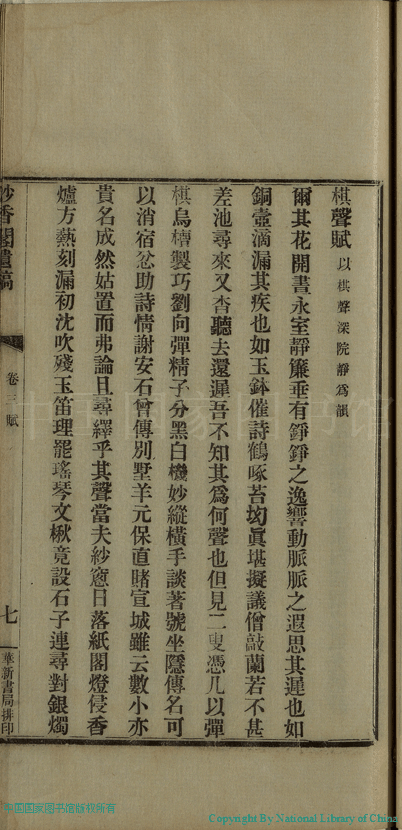 棋聲賦 以棋聲深院靜為韻
爾其花開晝永室靜簾垂有錚錚之逸響動脈脈之遐思其遲也如
銅壺滴漏其疾也如玉鉢催詩鶴啄苔㘭眞堪擬議僧敲蘭若不甚
差池尋來又杳聽去還遲吾不知其為何聲也但見二叟憑几以彈
棋烏檀製巧劉向彈精子分黑白機妙縱橫手談著號坐隱傳名可
以消宿忿助詩情謝安石曾傳別墅羊元保直賭宣城雖云數小亦
貴名成然姑置而弗論且尋繹乎其聲當夫紗窻日落紙閣燈侵香
爐方熱刻漏初沈吹殘玉笛理罷瑤琴文楸竟設石子連尋對銀燭
妙香閣遺稿
卷三 賦
七
華新書局排印
中国国家图书馆版权所有
Copyright By National Library of China